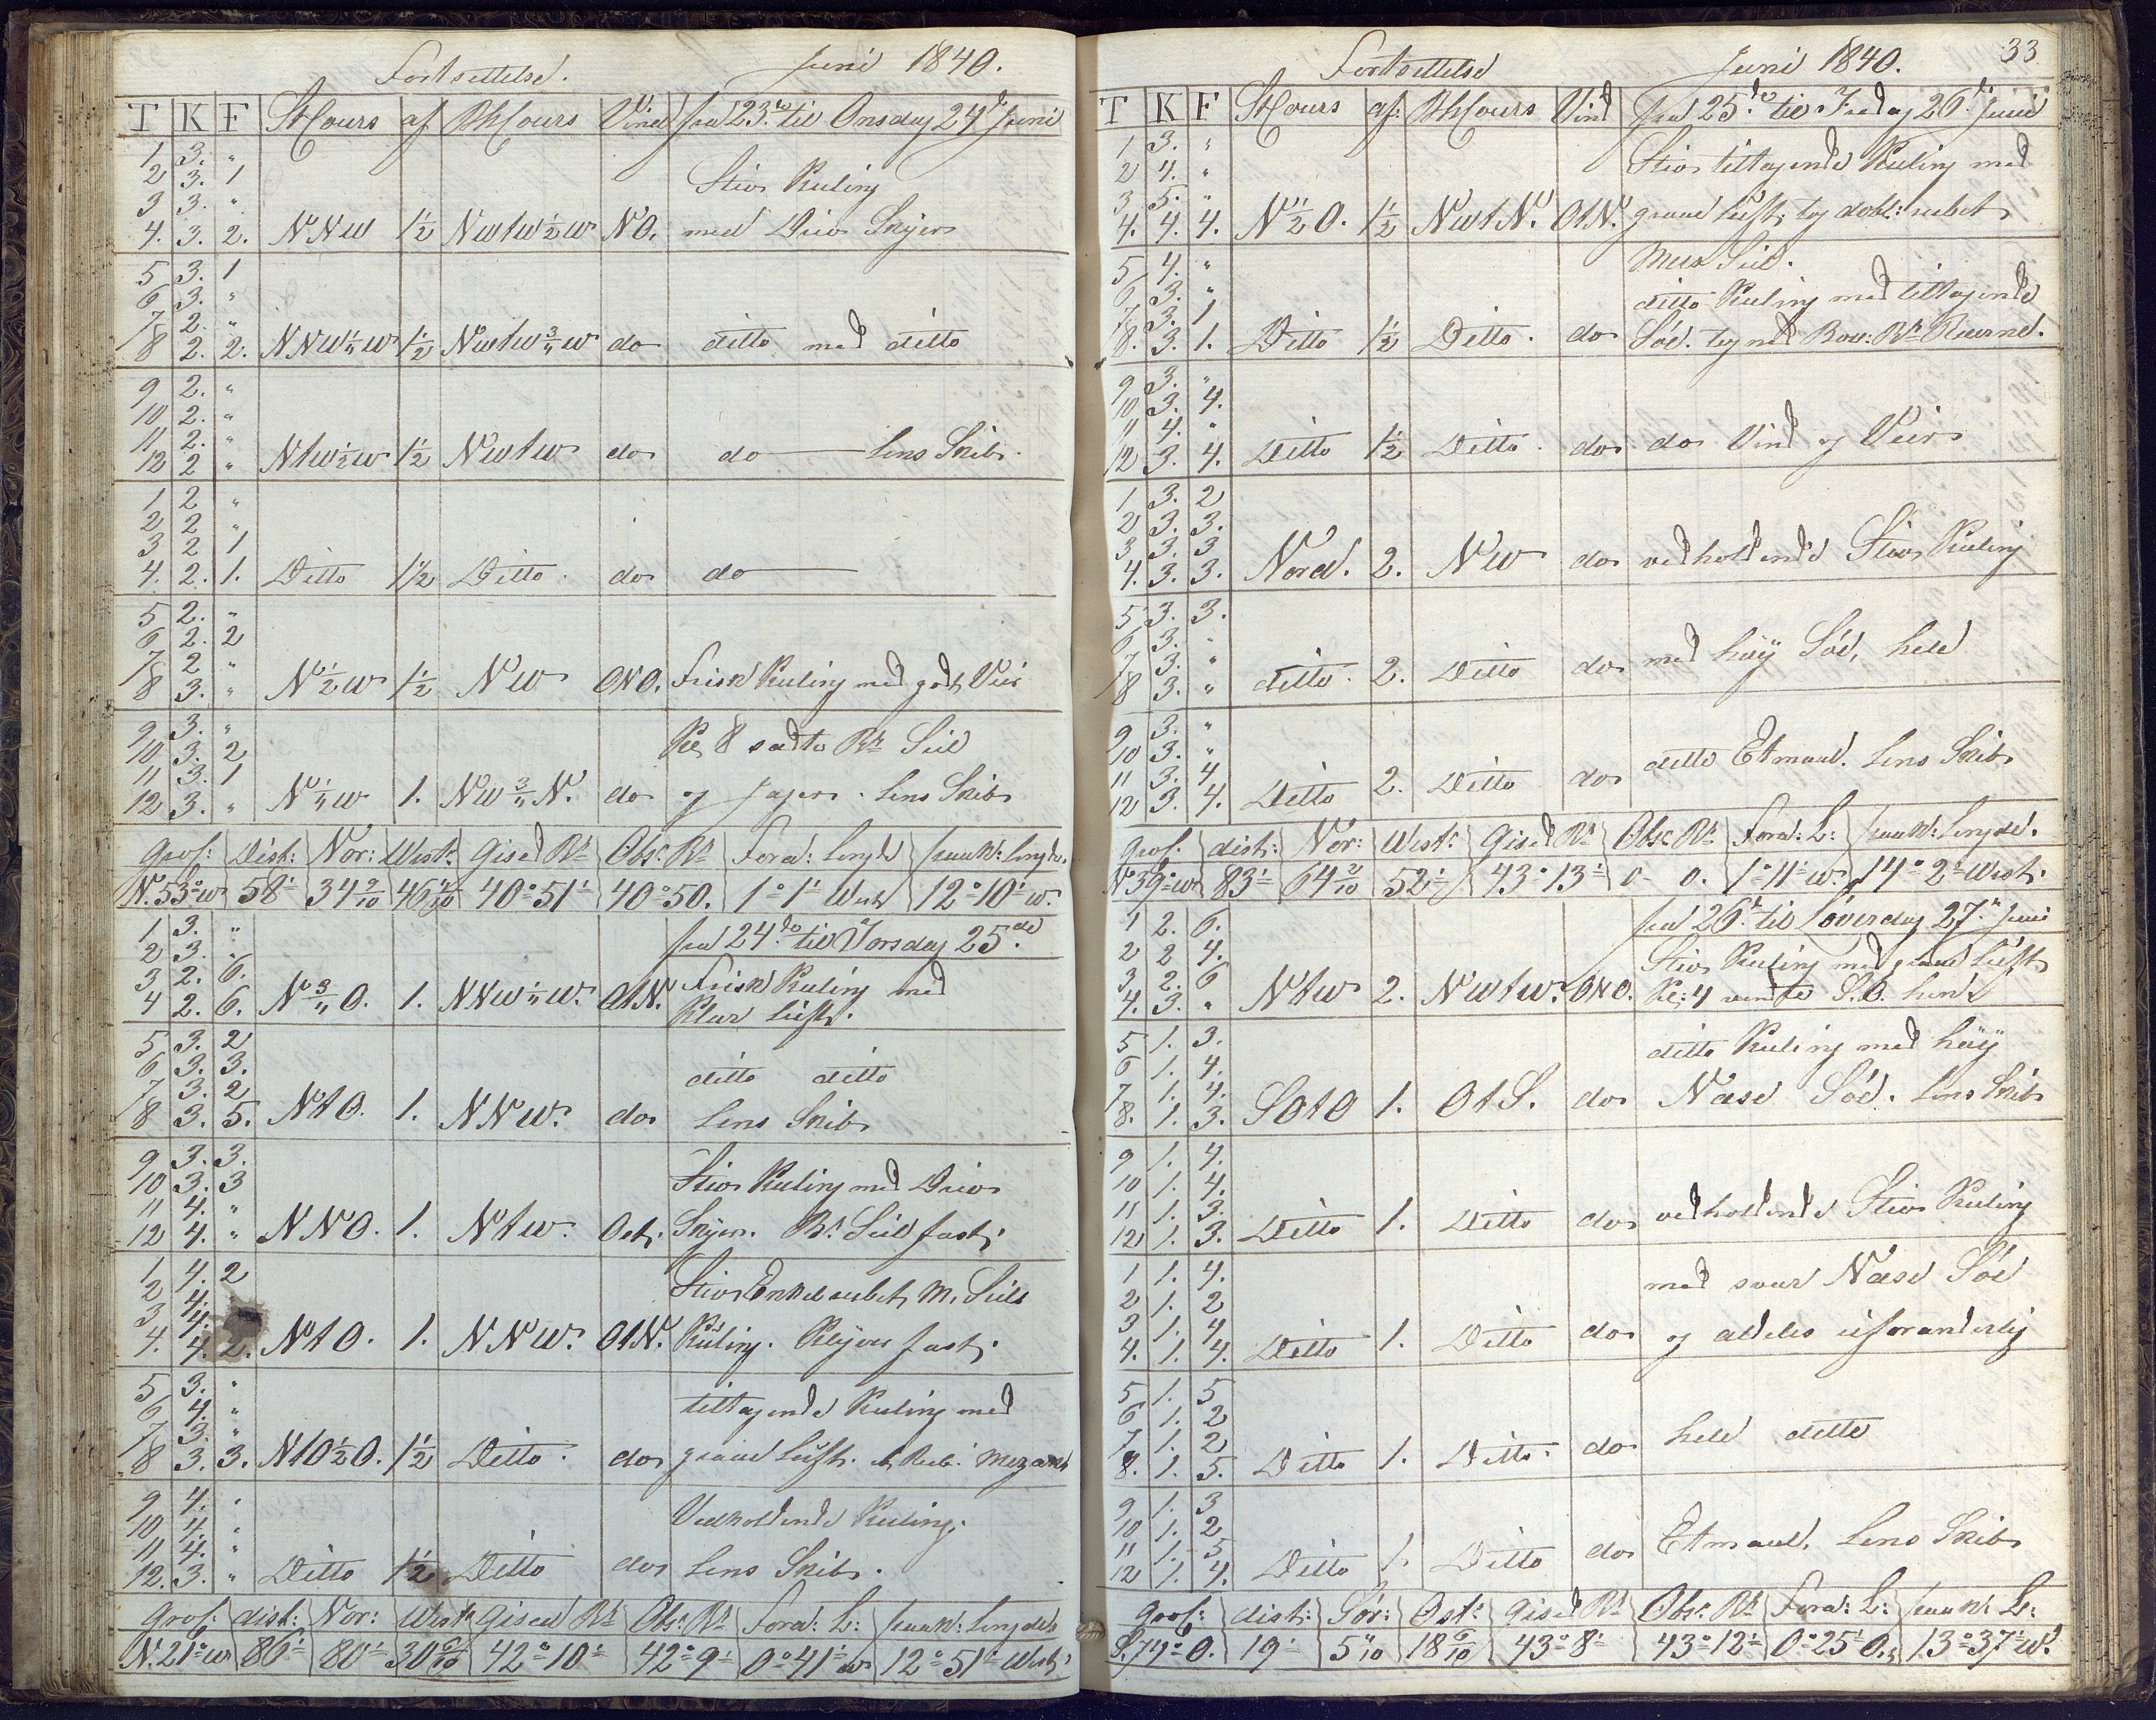 Fortsettelse. Juni 1840.
T K F St Cours af Bh Cours Vind fra 23de til Onsdag 24de Juni
1 3. "
2 3. 1 Stiv Kuling
3 3. "
4. 3. 2. NNW 1½ NWtW½W NO. med Driv Skyer
5 3. 1
6 3. "
7 2. "
8 2. 2. NNW¼W 1½ NWtW¾W do ditto med ditto
9 2. "
10 2. "
11 2. "
12 2 " NtW½W 1½ NWtW do do — Lens Skib.
1 2 "
2 2 "
3 2 1
4. 2. 1. Ditto 1½ Ditto. do do —
5 2. "
6 2. 2
7 2 "
8 3. " N½W 1½ NW ONO. Frisk Kuling med godt Veir
9 3. " Kl. 8 satte Br. Seil
10 3. 2
11 3. 1
12 3. " N¼W 1. NW¾N. do og Jager. Lens Skib
Gros: Dist: Nor: West: Gised Br. Obs: Br. Fora: Lengde paaK: Lengde.
N.53°W 58' 34 9/10 46 4/10 40°51' 40°50. 1°1' West 12°10' W.
1 3. " fra 24de til Torsdag 25de
2 3. "
3 2. 6. Frisk Kuling med
4 2. 6. N¾O. 1. NNW¼W. OtN. Klar Luft.
5 3. 2
6 3. 3. ditto ditto
7 3. 2
8 3. 5. NtO. 1. NNW. do Lens Skib
9 3. 3.
10 3. 3 Stiv Kuling med Driv
11 4. "
12 4. " NNO. 1. NtW. Ost. Skyer. Br. Seil fast.
1 4. 2 Stiv Enkelrebet M. Seils
2 4.
3 4.
4. 4. 2. NtO. 1. NNW. OtN. Kuling. Klyver fast.
5 3. "
6 4. " tiltagende Kuling med
7 3. "
8 3. 3. NtO½O. 1½ Ditto. do graae Luft. Mezan
9 4. " Vedholdende Kuling.
10 4. "
11 4. "
12. 3. " Ditto 1½ Ditto do Lens Skib.
Gros: dist: Nor: West: Gised Br. Obs: Br. Ford: L: paaK: Lengde
N.21°W 86' 80' 30 9/10 42°10' 42°9' 0°41' W 12°51' West.
Fortsettelse Juni 1840. 33
T K F St Cours af: Bh Cours Vind fra 25de til Fredag 26de Juni
1 3. "
2 4. " Stiv tiltagende Kuling med
3 5. "
4. 4. 4. N½O. 1½ NWtN. OtN. graae Luft, tog dobl: rebet
5 4. " Mers Seil.
6 3. " ditto Kuling med tiltagende
7. 3. 1
8. 3. 1. Ditto 1½ Ditto. do Söe.
9 3. "
10 3. 4.
11 4. "
12 3. 4. Ditto 1½ Ditto. do do Vind og Veir
1 3. 2
2 3. 3.
3 3. 3
4. 3. 3. Nord. 2. NW do vedholdende Stiv Kuling
5 3. 3.
6 3. "
7 3. "
8 3. " ditto. 2. Ditto do med höy Söe, hele
9 3. "
10 3. " ditto Etmaal. Lens Skib
11 3. 4
12 3. 4. Ditto 2. Ditto do
Gros: dist: Nor: West: Gised Br. Obs: Br. Ford: L: paaK: Lengde.
N39°W 83' 64 3/10 52' 43°13' 0- 0. 1°11' W. 14°2' West.
1 2. 6. fra 26de til Löverdag 27de Juni
2 2 4. Stiv Kuling med graae Luft
3 2. 6
4. 3. " NtW 2. NWtW. ONO. Kl: 4 vendte S.O. hen
5 1. 3. ditto Kuling med höy
6 1. 4.
7 1. 4.
8. 1. 3. SOtO 1. OtS. do Næse Söe. Lens Skib
9 1. 4.
10 1. 4.
11 1. 3.
12 1. 3. Ditto 1. Ditto do vedholdende Stiv Kuling
1 1. 4. med svær Næse Söe
2 1. 2
3 1. 4
4. 1. 4. Ditto 1. Ditto do og aldeles uforanderlig
5 1. 5
6 1. 2
7 1. 2
8. 1. 5. Ditto 1. Ditto. do hele ditto
9 1. 3
10 1. 2
11 1. 5
12 1. 4. Ditto 1. Ditto do Etmaal, Lens Skib
Gros: dist: Sör: Ost: Gised Br. Obs: Br. Ford: L: paaK: L:
S.74°O. 19' 5 4/10 18 6/10 43°8' 43°12' 0°25' O. 13°37' W.